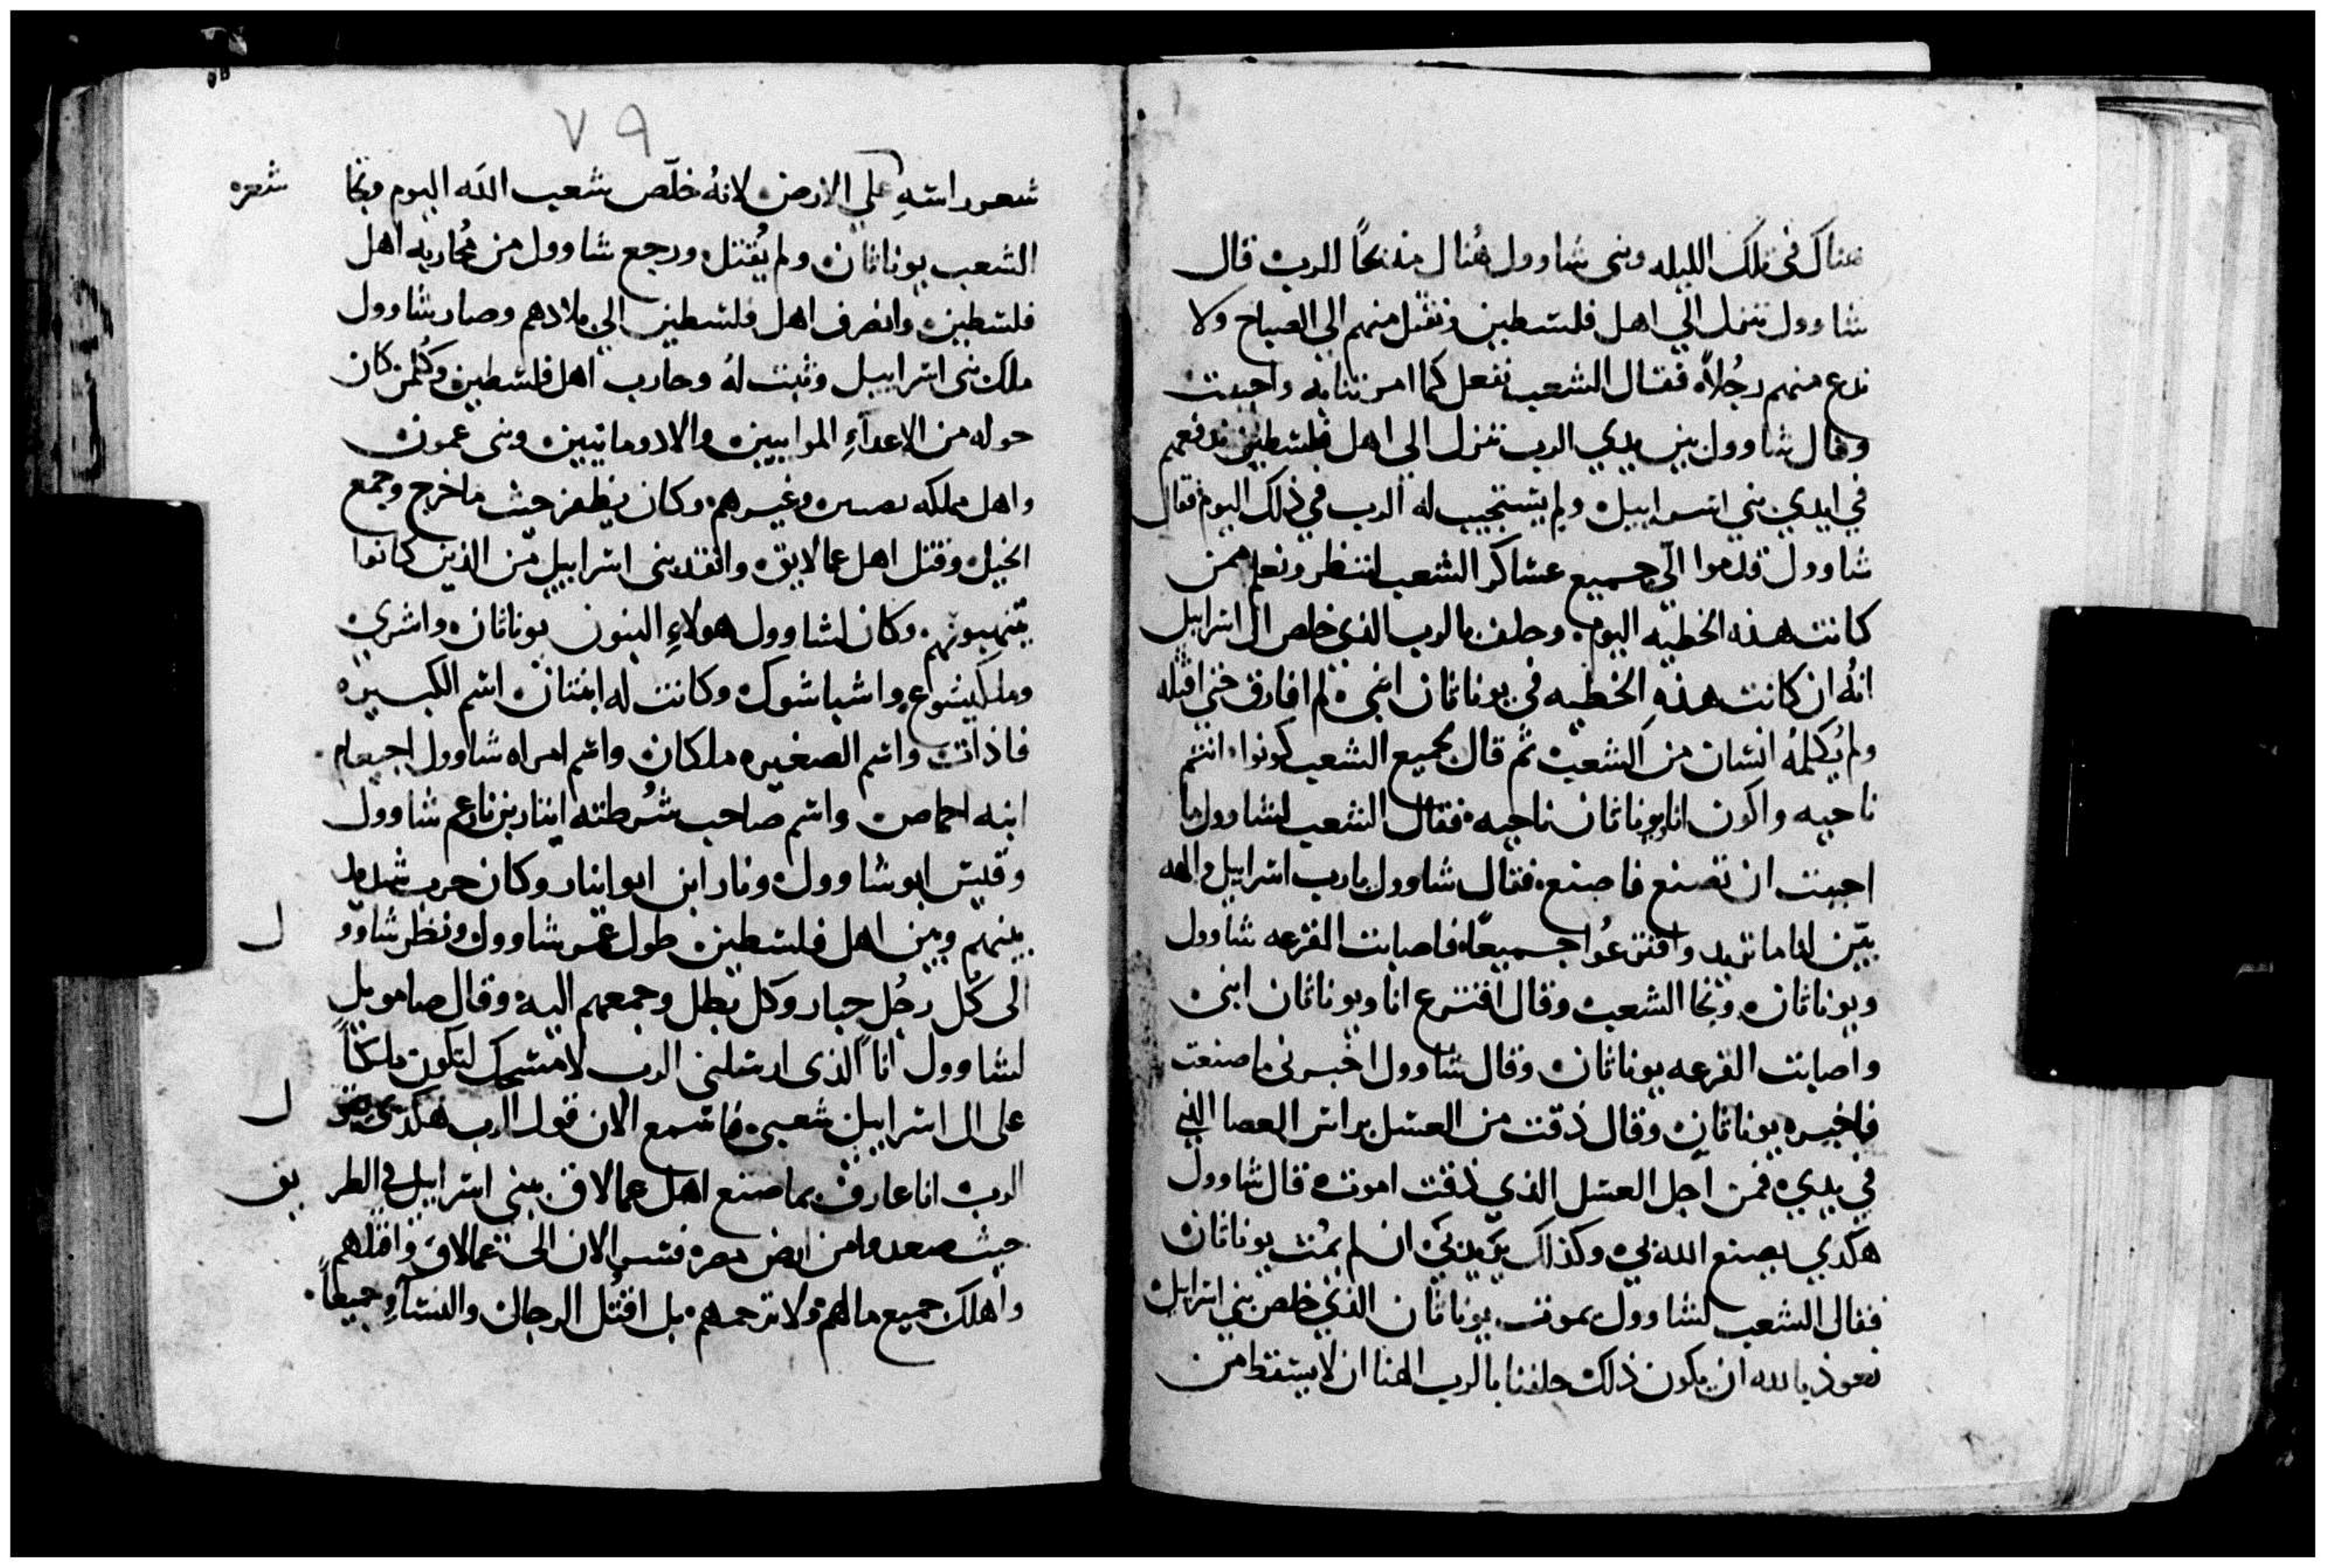 هناك في تلك الليله وبنى شاوول هنال مذبحاً للرب قال
شاوول ننزل الي اهل فلسطين ونقتل منهم الي الصباح ولا
ندع منهم رجُلاً فقال الشعب نفعل كما امرتنا به واحببت
وقال شاوول بين يدي الرب ننزل الي اهل فلسطين تدفعهم
في ايدي بني اسراييل ولم يستجيب له الرب في ذلك اليوم فقال
شاوول قدموا الّي جميع عساكر الشعب لننظر ونعلم ممن
كانت هذه الخطيه اليوم وحلف بالرب الذي خلص ال اسراييل
انهُ ان كانت هذهِ الخطيه في يوناثان ابني لم افارق حتى اقتله
ولم يُكلمهُ انسان من الشعب ثم قال لجميع الشعب كونوا انتم
ناحيه واكون انا ويوناثان ناحيه فقال الشعب لشاوول ما
احببت ان تصنع فاصنع فقال شاوول يا رب اسراييل والهه
بيّن لنا ما تريد واقترعُوا جميعاً فاصابت القرعه شاوول
ويوناثان ونجا الشعب وقال اقترع انا ويوناثان ابني
واصابت القرعه يوناثان وقال شاوول اخبرني ما صنعت
فاخبره يوناثان وقال ذقت من العسل براس العصا التي
في يدي فمن اجل العسل الذي ذقت اموت قال شاوول
هكدي يصنع الله بي وكذلك يزيدني ان لم يمُت يوناثان
فقال الشعب لشاوول يموت يوناثان الذي خلص بني اسراييل
نعوذ بالله ان يكون ذلك حلفنا بالرب الهنا ان لا يسقط من
٧٩
شعر راسهِ علي الارض لانهُ خلّص شعب الله اليوم ونجا شعره
الشعب يوناثان ولم يُقتل ورجع شاوول من مُحاربه اهل
فلسطين وانصرف اهل فلسطين الي بلادهم وصار شاوول
ملك بني اسراييل وثبت لهُ وحارب اهل فلسطين وكُلمن كان
حوله من الاعدآءِ الموابيين والادومانيين وبني عمون
واهل مملكه وغيرهم وكان يظفر حيث ما خرج وجمع
الخيل وقتل اهل عمالايق وانقد بني اسراييل من الذين كانوا
ينهبونهم وكان لشاوول هولاءِ البنون يوناثان واشري
وملكيشوع واشباشوك وكانت له ابنتان اسم الكبيره
فاذات واسم الصغيره ملكان واسم امراه شاوول اجيعام
ابنه احماص واسم صاحب شُرطته ابنار بن نار عم شاوول
وقيس ابو شاوول ونار ابن ابو ابنار وكان حرب شديد
بينهم وبين اهل فلسطين طول عمر شاوول ونظر شاوو ل
الى كُل رجُل جبار وكل بطل وجمعهم اليه وقال صامويل
لشاوول اناً الذى ارسلنى الرب لامسحك لتكون ملكاً
على ال اسراييل شعبي فاسمع الان قول الرب هكدى يقو ل
الرب انا عارف بما صنع اهل عمالاق ببني اسراييل في الطر يق
حيث صعدوا من ارض مصر فسر الان الى عمالاق واقتلهم
واهلك جميع مالهم ولا ترحمهم بل اقتُل الرجال والنسآءِ جميعاً